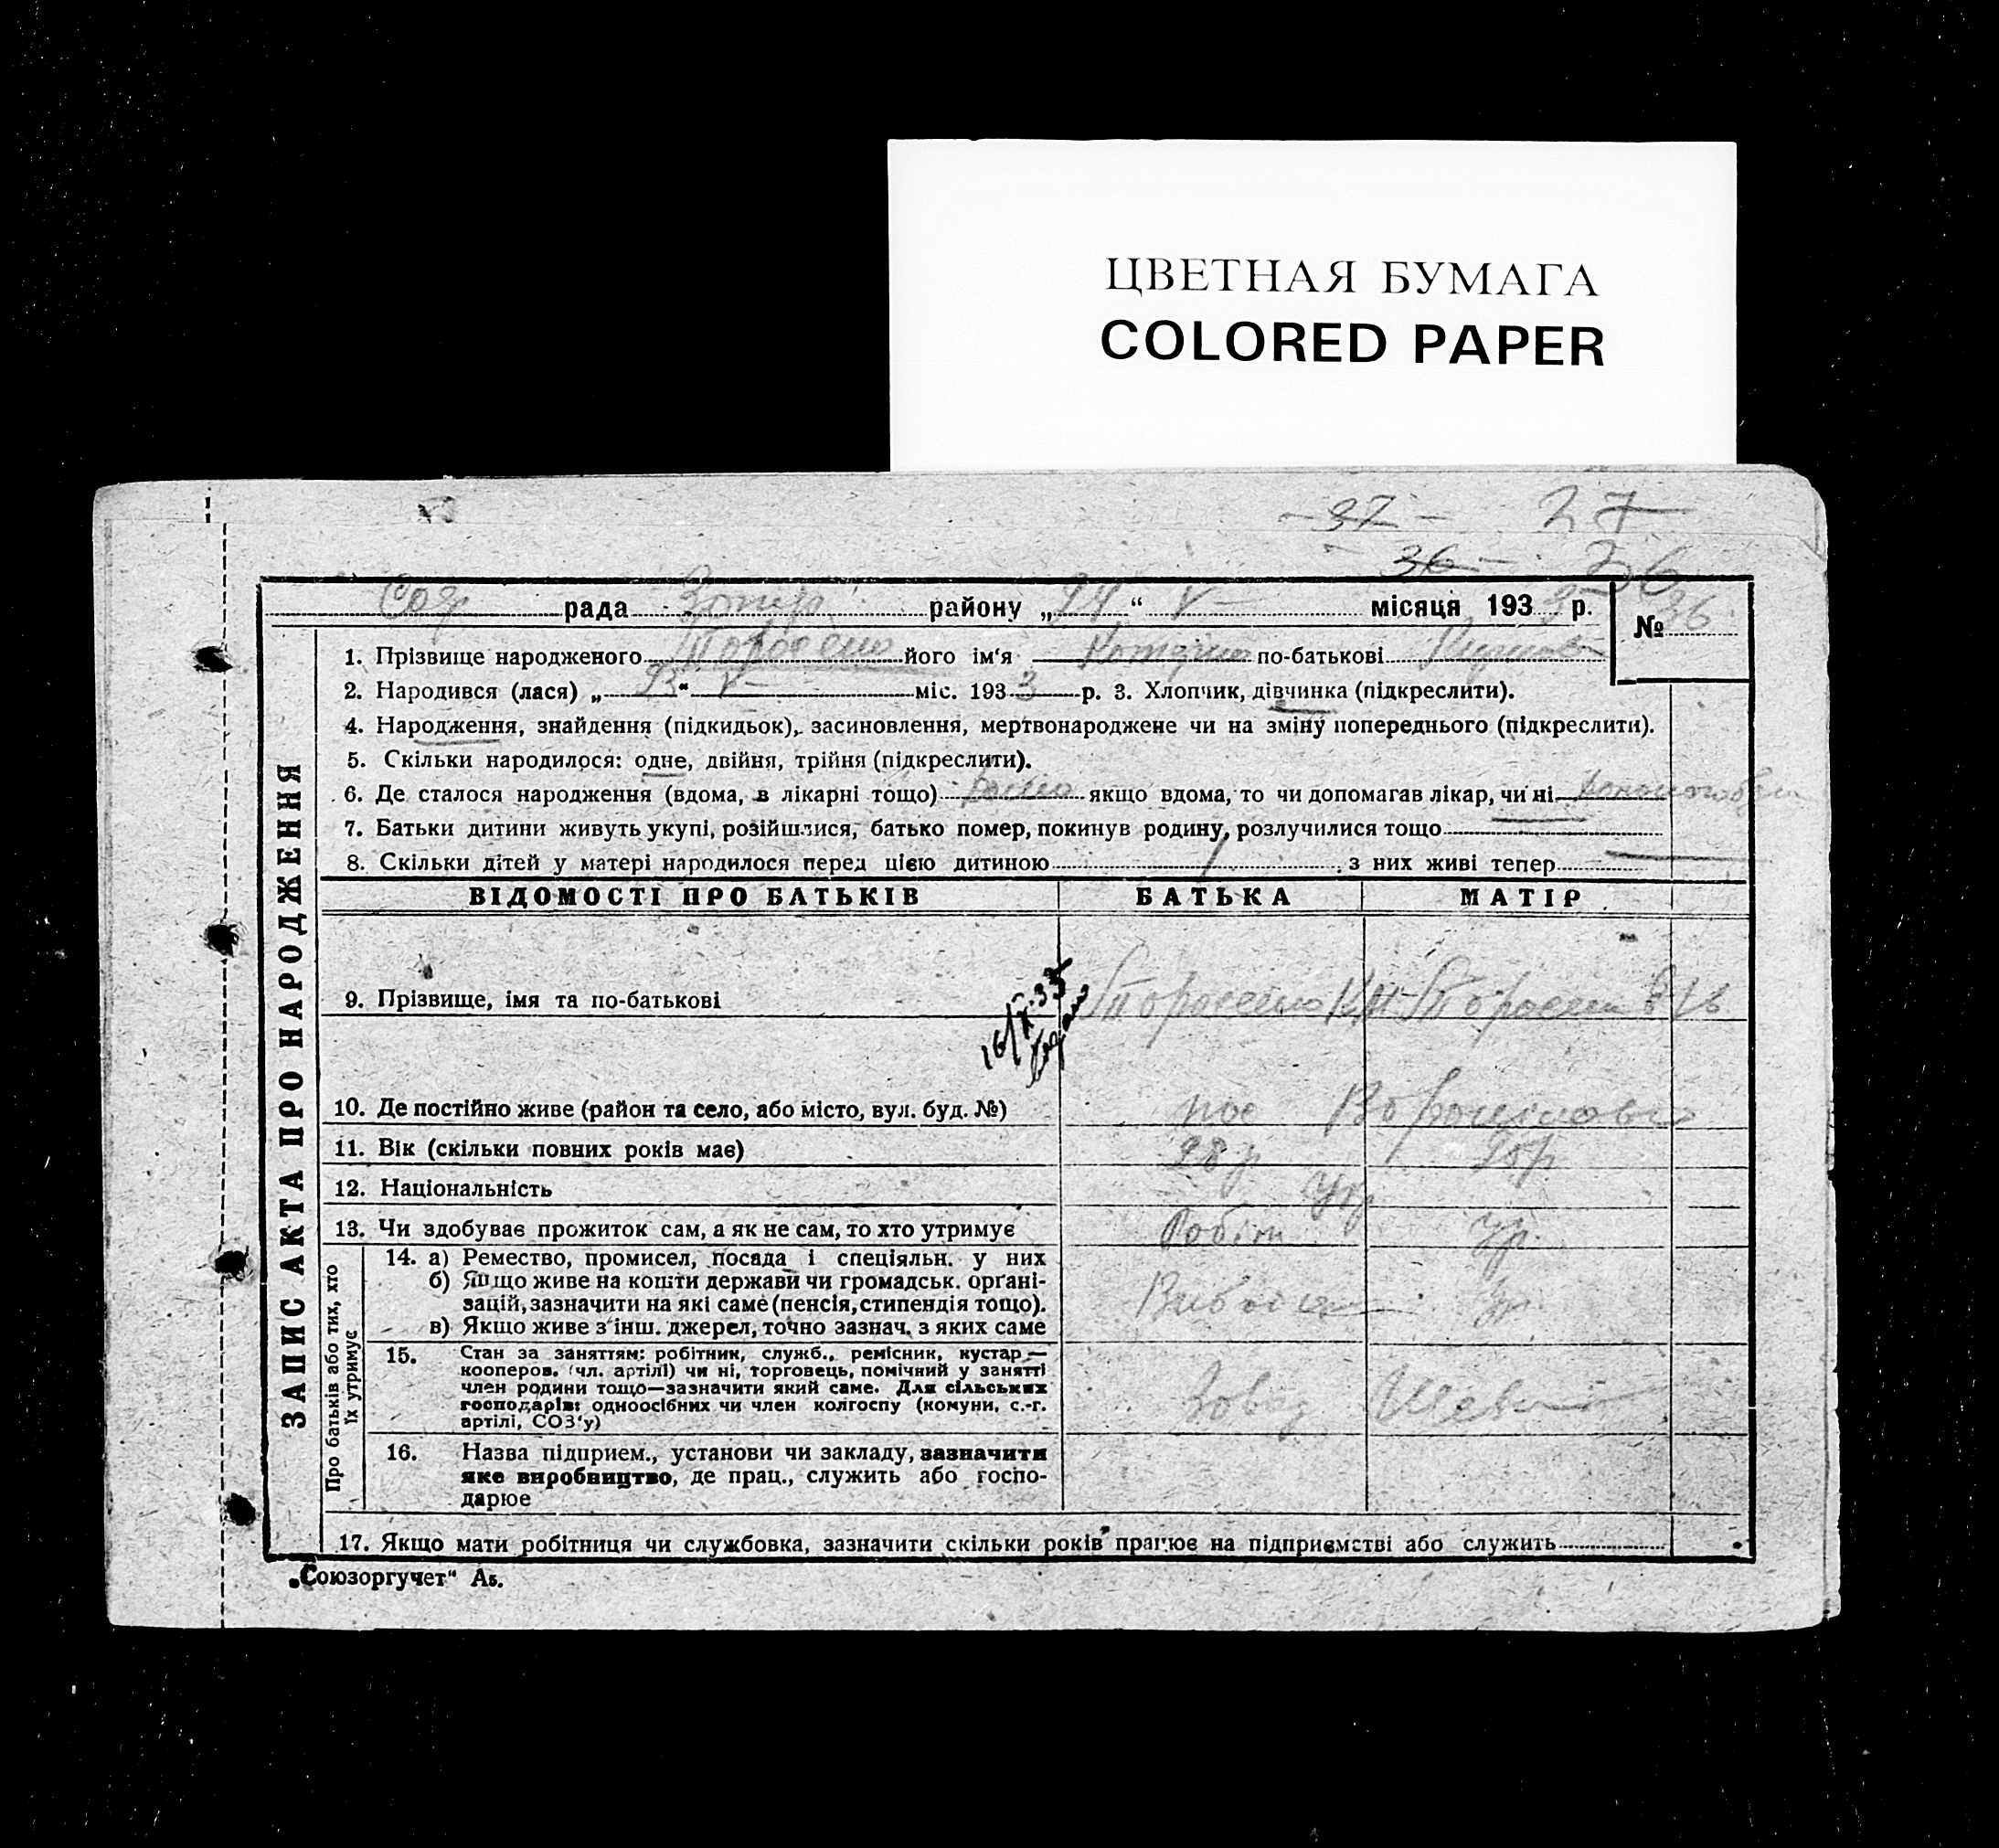 ЦВЕТНАЯ БУМАГА
COLORED PAPER
-37- 27
-36- 36
рада району „24“ V місяця 1933 р. № 36
1. Прізвище народженого його ім'я по-батькові
2. Народився (лася) „23“ V міс. 1933 р. 3. Хлопчик, дівчинка (підкреслити).
4. Народження, знайдення (підкидьок), засиновлення, мертвонароджене чи на зміну попереднього (підкреслити).
5. Скільки народилося: одне, двійня, трійня (підкреслити).
6. Де сталося народження (вдома, в лікарні тощо) якщо вдома, то чи допомагав лікар, чи ні
7. Батьки дитини живуть укупі, розійшлися, батько помер, покинув родину, розлучилися тощо
8. Скільки дітей у матері народилося перед цією дитиною 1 з них живі тепер
ВІДОМОСТІ ПРО БАТЬКІВ БАТЬКА МАТІР
9. Прізвище, імя та по-батькові
10. Де постійно живе (район та село, або місто, вул. буд. №) пос
11. Вік (скільки повних років має) 28 р 25 р
12. Національність Укр
13. Чи здобуває прожиток сам, а як не сам, то хто утримує Робіт
14. а) Ремество, промисел, посада і спеціяльн. у них
б) Якщо живе на кошти держави чи громадськ. орґані-
зацій, зазначити на які саме (пенсія, стипендія тощо).
в) Якщо живе з інш. джерел, точно зазнач. з яких саме
15. Стан за заняттям: робітник, служб., ремісник, кустар—
кооперов. (чл. артілі) чи ні, торговець, помічний у занятті
член родини тощо—зазначити який саме. Для сільських
господарів: одноосібних чи член колгоспу (комуни, с.-г.
артілі, СОЗ'у)
16. Назва підприєм., установи чи закладу, зазначити
яке виробництво, де прац., служить або госпо-
дарює
17. Якщо мати робітниця чи службовка, зазначити скільки років працює на підприємстві або служить
ЗАПИС АКТА ПРО НАРОДЖЕННЯ
Про батьків або тих, хто
їх утримує
„Союзоргучет“ А5.